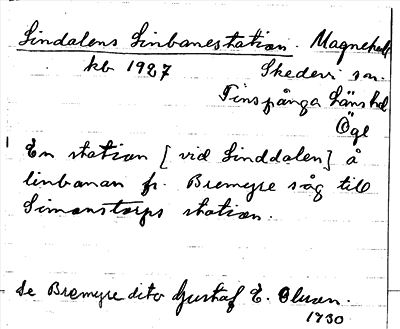 Lindalens Linbanestation. Magnehult
kb 1927 Skedevi sn.
Finspånga Läns hd
Ögl
En station [vid Linddalen] å
linbanan fr. Bremyre såg till
Simonstorps station.
Se Bremyre dito Gustaf E. Olsson.
1930